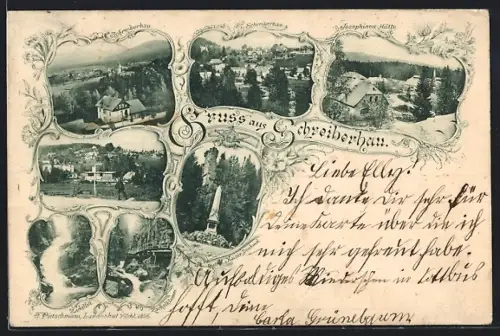 Schreiberhau.
Schreiberhau.
Josephinen-Hütte
Gruss aus Schreiberhau.
Liebe Elly!
Ich danke Dir sehr für
Deine Karte über die ich
mich sehr gefreut habe.
Auf baldiges Wiedersehen in Cottbus
hofft, Deine
Carla